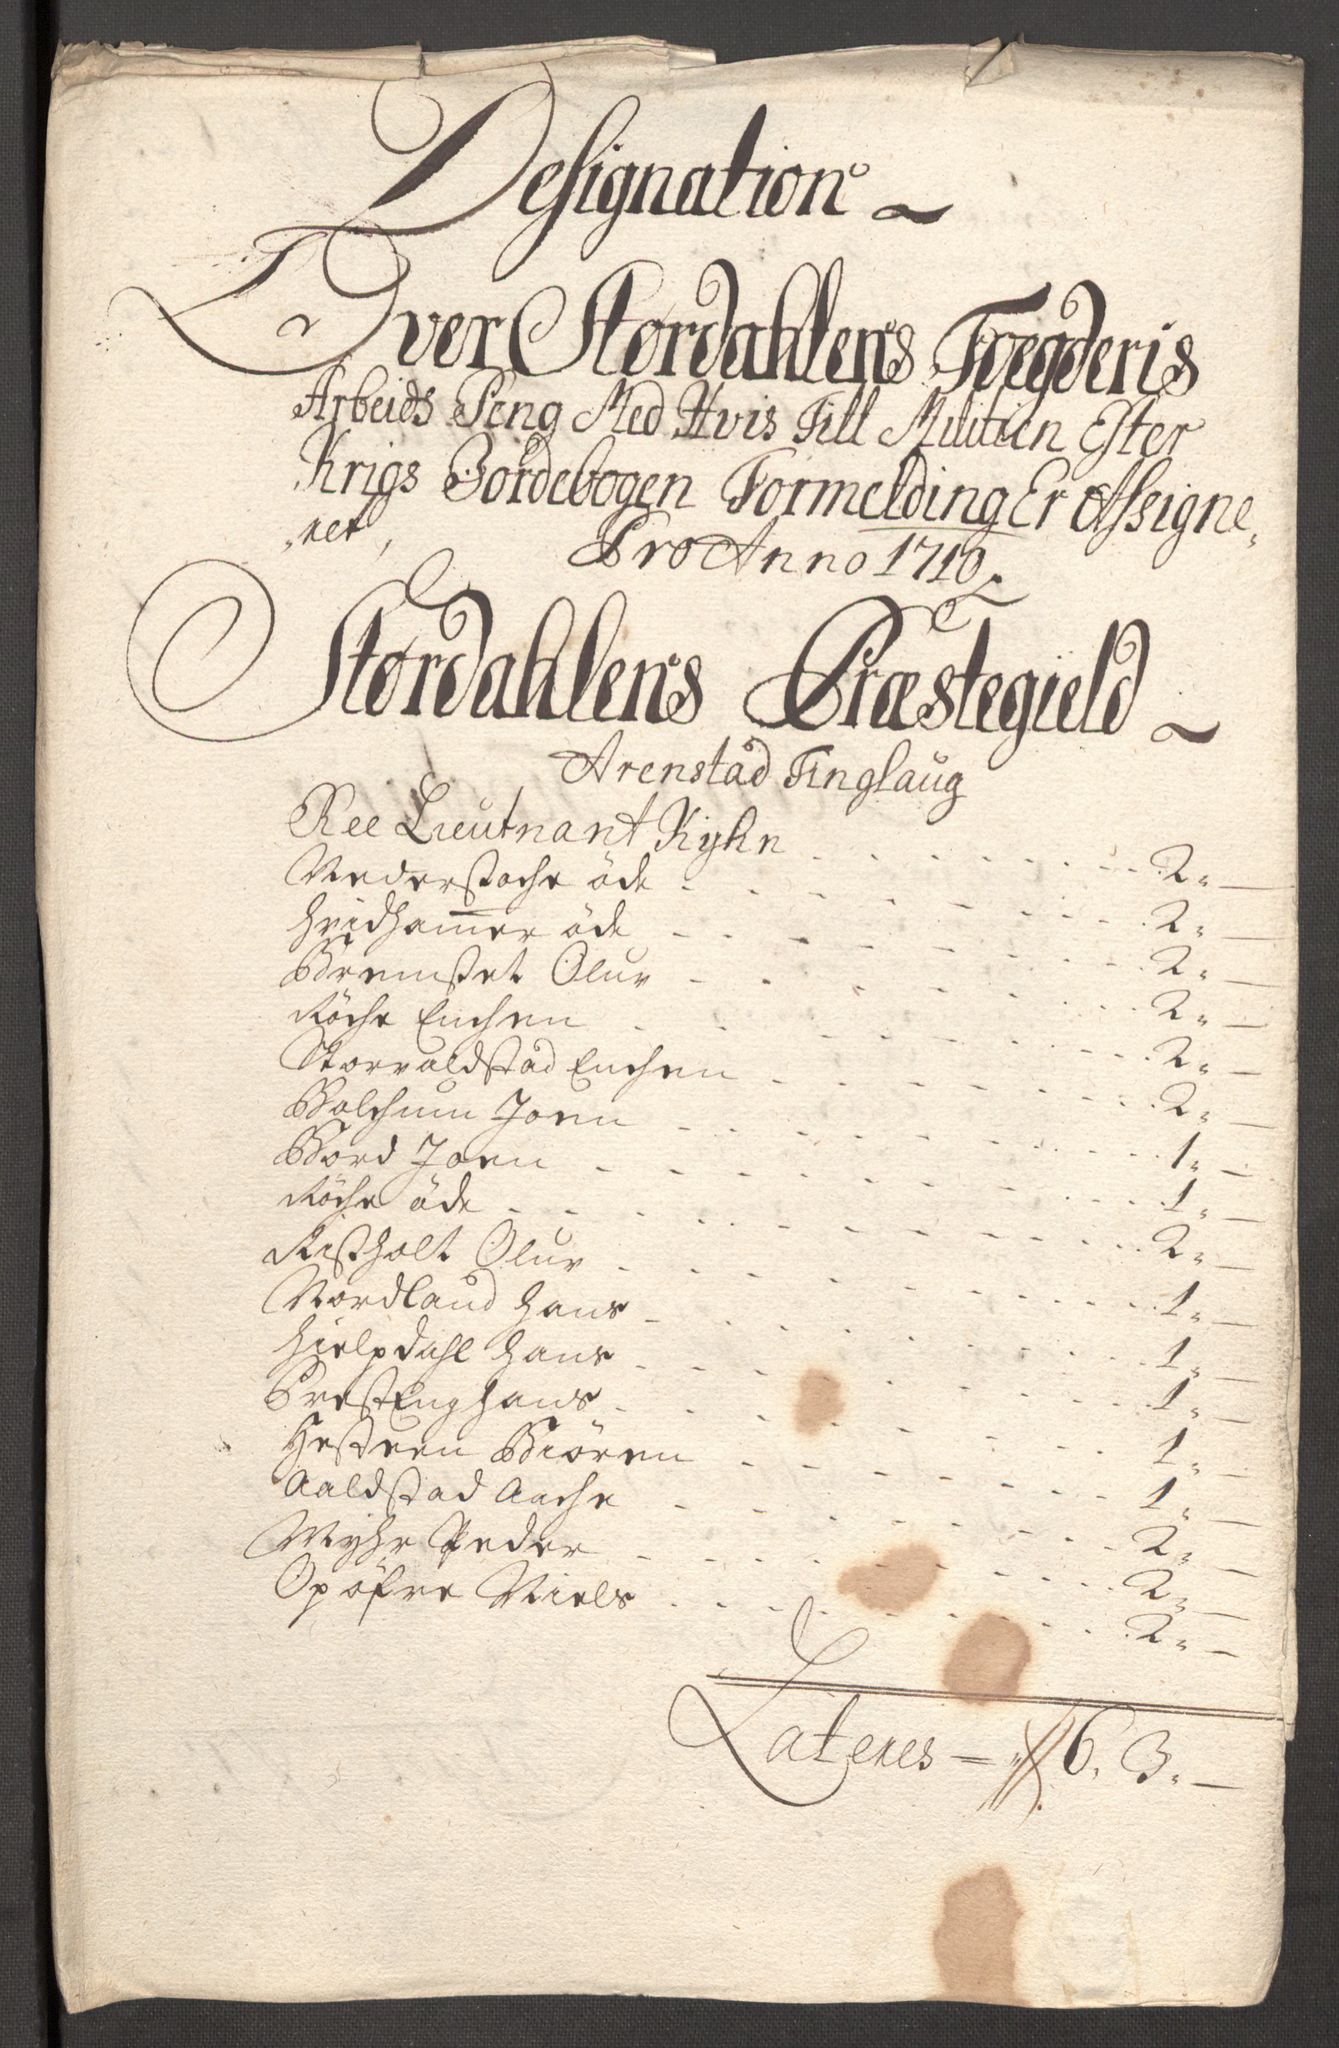 Designation
Over Størdahlens Foegderis
Arbeids Peng Med Hvis Till Militien Efter
Krigs Jordebogen Formelding Er Assigne,
,ret,
Pro Anno 1710
Størdahlens Præstegield
Arenstad Tinglaug
Ree Lieutnant Kyhn . . . . . 2 " —
Nederstoche öde . . . . . 2 " —
Hvidhammer öde . . . . . 2 " —
Bremset Oluv . . . . . 2 " —
Röche Enchen . . . . . 2 " —
Storvaldstad Enchen . . . . . 2 " —
Bolchum Joen . . . . . 1 " —
Bord Joen . . . . . 1 " —
Röche öde . . . . . 2 " —
Ristholt Oluv . . . . . 1 " —
Nordland Hans . . . . . 1 " —
Hielpdahl Hans . . . . . 1 " —
PrestEng Hans . . . . . 1 " —
Hesteen Biören . . . . . 1 " —
Aaldstad Aache . . . . . 2 " —
Myhr Peder . . . . . 2 " —
Opöfre Niels . . . . . 2 " —
Lateres — 6. 3. —